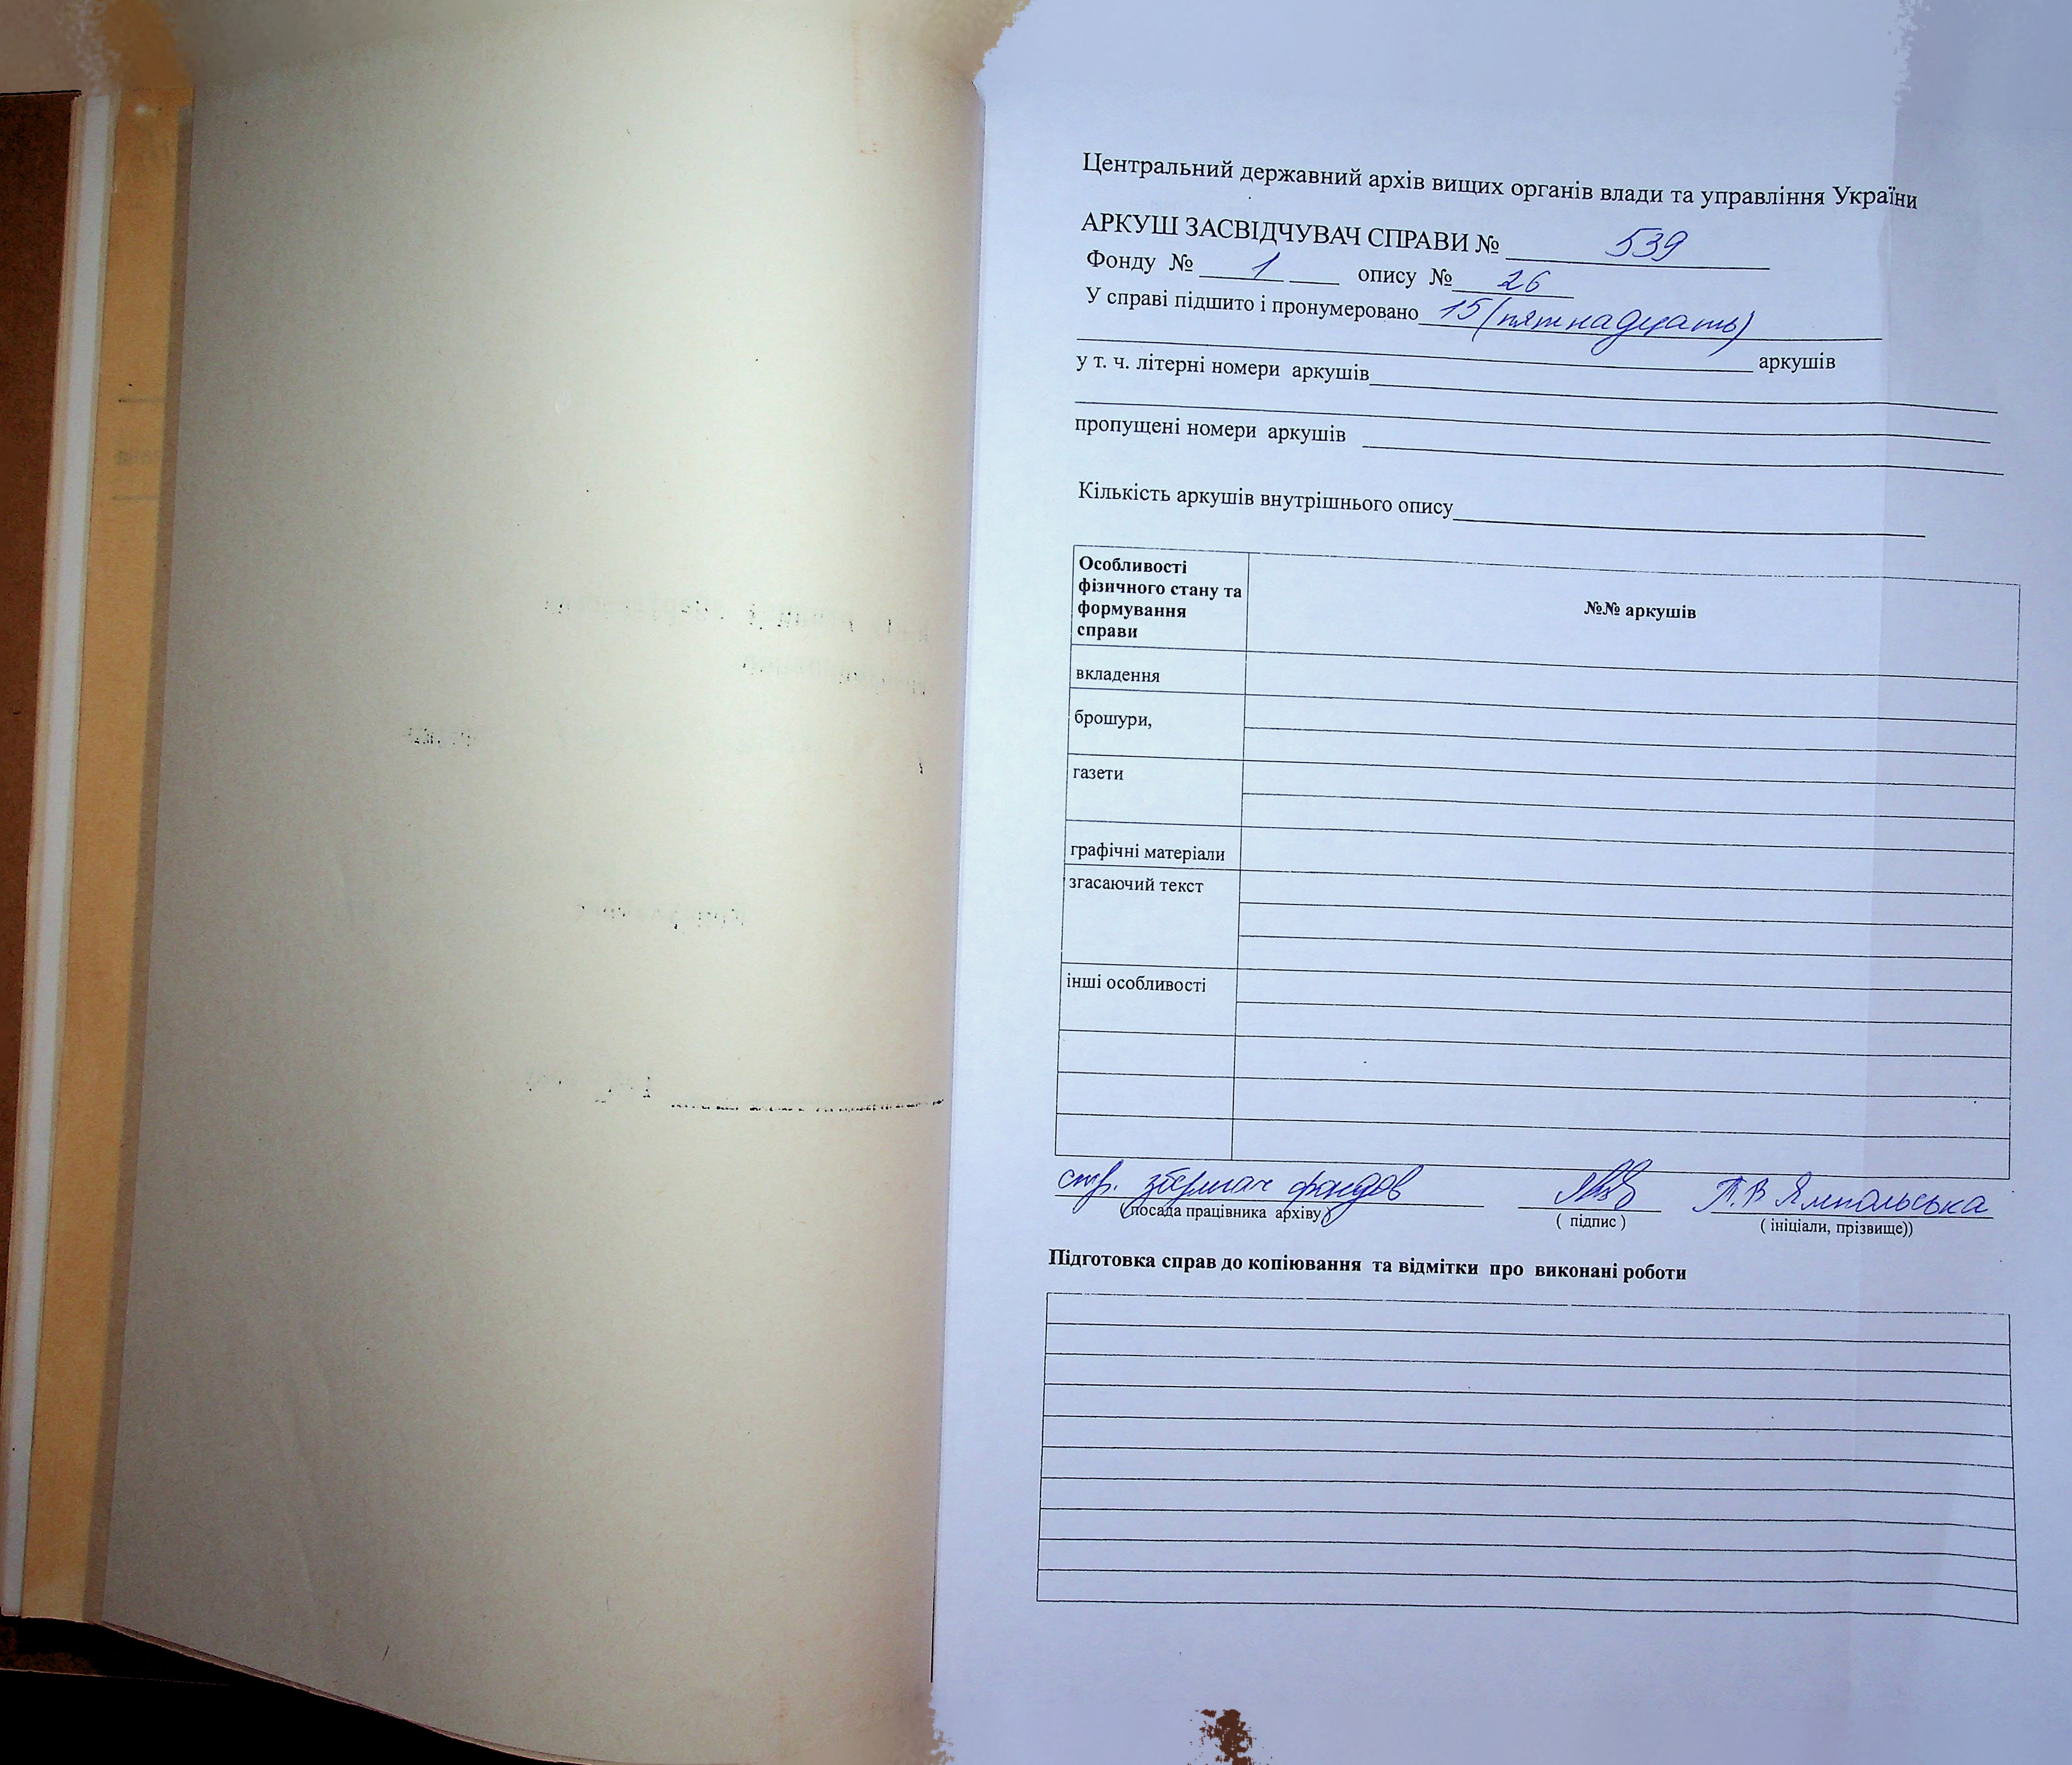 Центральний державний архів вищих органів влади та управління України
АРКУШ ЗАСВІДЧУВАЧ СПРАВИ № 539
Фонду № 1 опису № 26
У справі підшито і пронумеровано 15 (пятнадцать)
аркушів
у т. ч. літерні номери аркушів
пропущені номери аркушів
Кількість аркушів внутрішнього опису
Особливості
фізичного стану та
формування
справи
№№ аркушів
вкладення
брошури,
газети
графічні матеріали
згасаючий текст
інші особливості
стр. зберігач фондов
Т.В Ямпольська
( посада працівника архіву )
( підпис )
( ініціали, прізвище))
Підготовка справ до копіювання та відмітки про виконані роботи